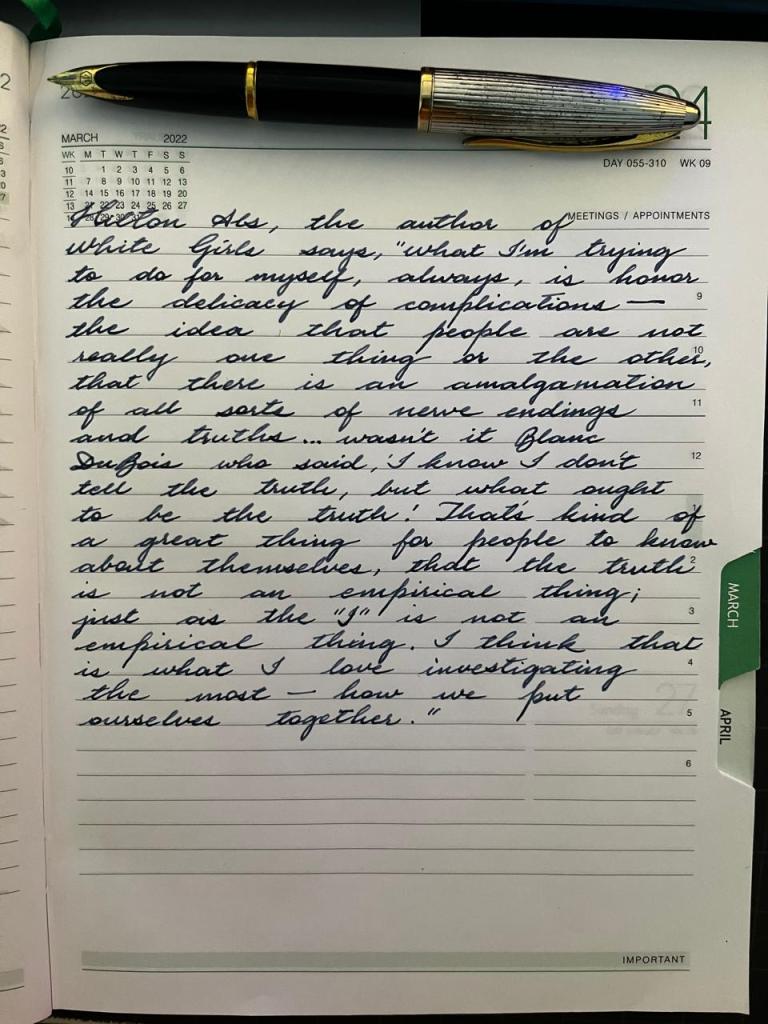 24
MARCH 2022
WK M T W T F S S
10 1 2 3 4 5 6
11 7 8 9 10 11 12 13
12 14 15 16 17 18 19 20
13 21 22 23 24 25 26 27
28 29 30 31
DAY 055-310 WK 09
MEETINGS / APPOINTMENTS
Hilton Als, the author of
White Girls says, "what I'm trying
to do for myself, always, is honor
the delicacy of complications —
9
the idea that people are not
really one thing or the other,
10
that there is an amalgamation
of all sorts of nerve endings
11
and truths... wasn't it Blanc
DuBois who said, 'I know I don't
12
tell the truth, but what ought
to be the truth! That's kind of
a great thing for people to know
about themselves, that the truth
2
is not an empirical thing;
just as the "I" is not an
3
empirical thing. I think that
is what I love investigating
4
the most — how we put
ourselves together."
5
6
MARCH
APRIL
IMPORTANT